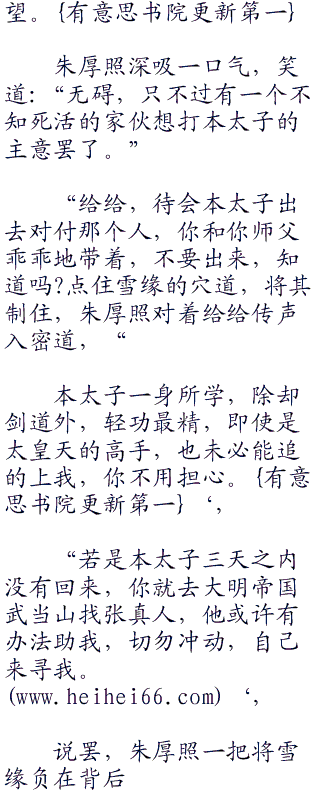 望。{有意思书院更新第一}
朱厚照深吸一口气，笑
道：“无碍，只不过有一个不
知死活的家伙想打本太子的
主意罢了。”
“给给，待会本太子出
去对付那个人，你和你师父
乖乖地带着，不要出来，知
道吗?点住雪缘的穴道，将其
制住，朱厚照对着给给传声
入密道，“
本太子一身所学，除却
剑道外，轻功最精，即使是
太皇天的高手，也未必能追
的上我，你不用担心。{有意
思书院更新第一}‘，
“若是本太子三天之内
没有回来，你就去大明帝国
武当山找张真人，他或许有
办法助我，切勿冲动，自己
来寻我。
(www.heihei66.com)‘，
说罢，朱厚照一把将雪
缘负在背后